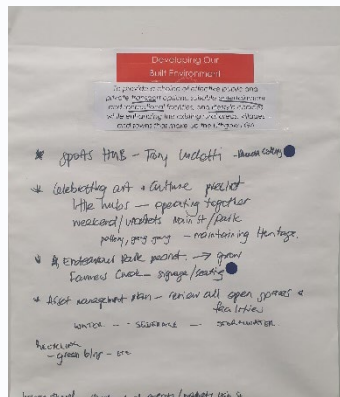 Developing Our
Built Environment
To provide a choice of effective public and
private transport options, suitable
and recreational facilities, and lifestyle
while enhancing the existing rural areas, villages
and towns that make up the Lithgow LGA
* Sports Hub - Tony Luchetti -
* Celebrating art + culture precinct
little hubs - operating together
weekend/markets Main St/park
pottery, - maintaining Heritage.
* Endeavour Park precinct. → grow
Farmers Creek - signage/seating
* Asset management plan - review all open spaces &
facilities
WATER - - SEWERAGE - STORMWATER.
- green bins - etc